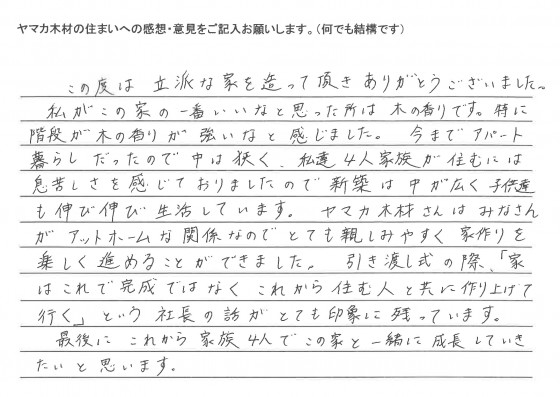 ヤマカ木材の住まいへの感想・意見をご記入お願いします。(何でも結構です)
この度は 立派な家を造って頂き ありがとうございました。
私がこの家の一番いいなと思った所は 木の香りです。特に
階段が木の香りが 強いなと 感じました。 今まで アパート
暮らし だったので 中は 狭く、私達 4人家族が 住むには
息苦しさを感じておりましたので 新築は 中が広く 子供達
も 伸び伸び 生活しています。 ヤマカ木材さんは みなさん
が アットホームな関係なので とても親しみやすく 家作りを
楽しく 進めることが できました。 引き渡し式の際、「家
は これで 完成では なく これから 住む人と共に 作り上げて
行く」 という 社長の話が とても 印象に 残っています。
最後に これから 家族 4人で この家と 一緒に 成長 していき
たいと 思います。